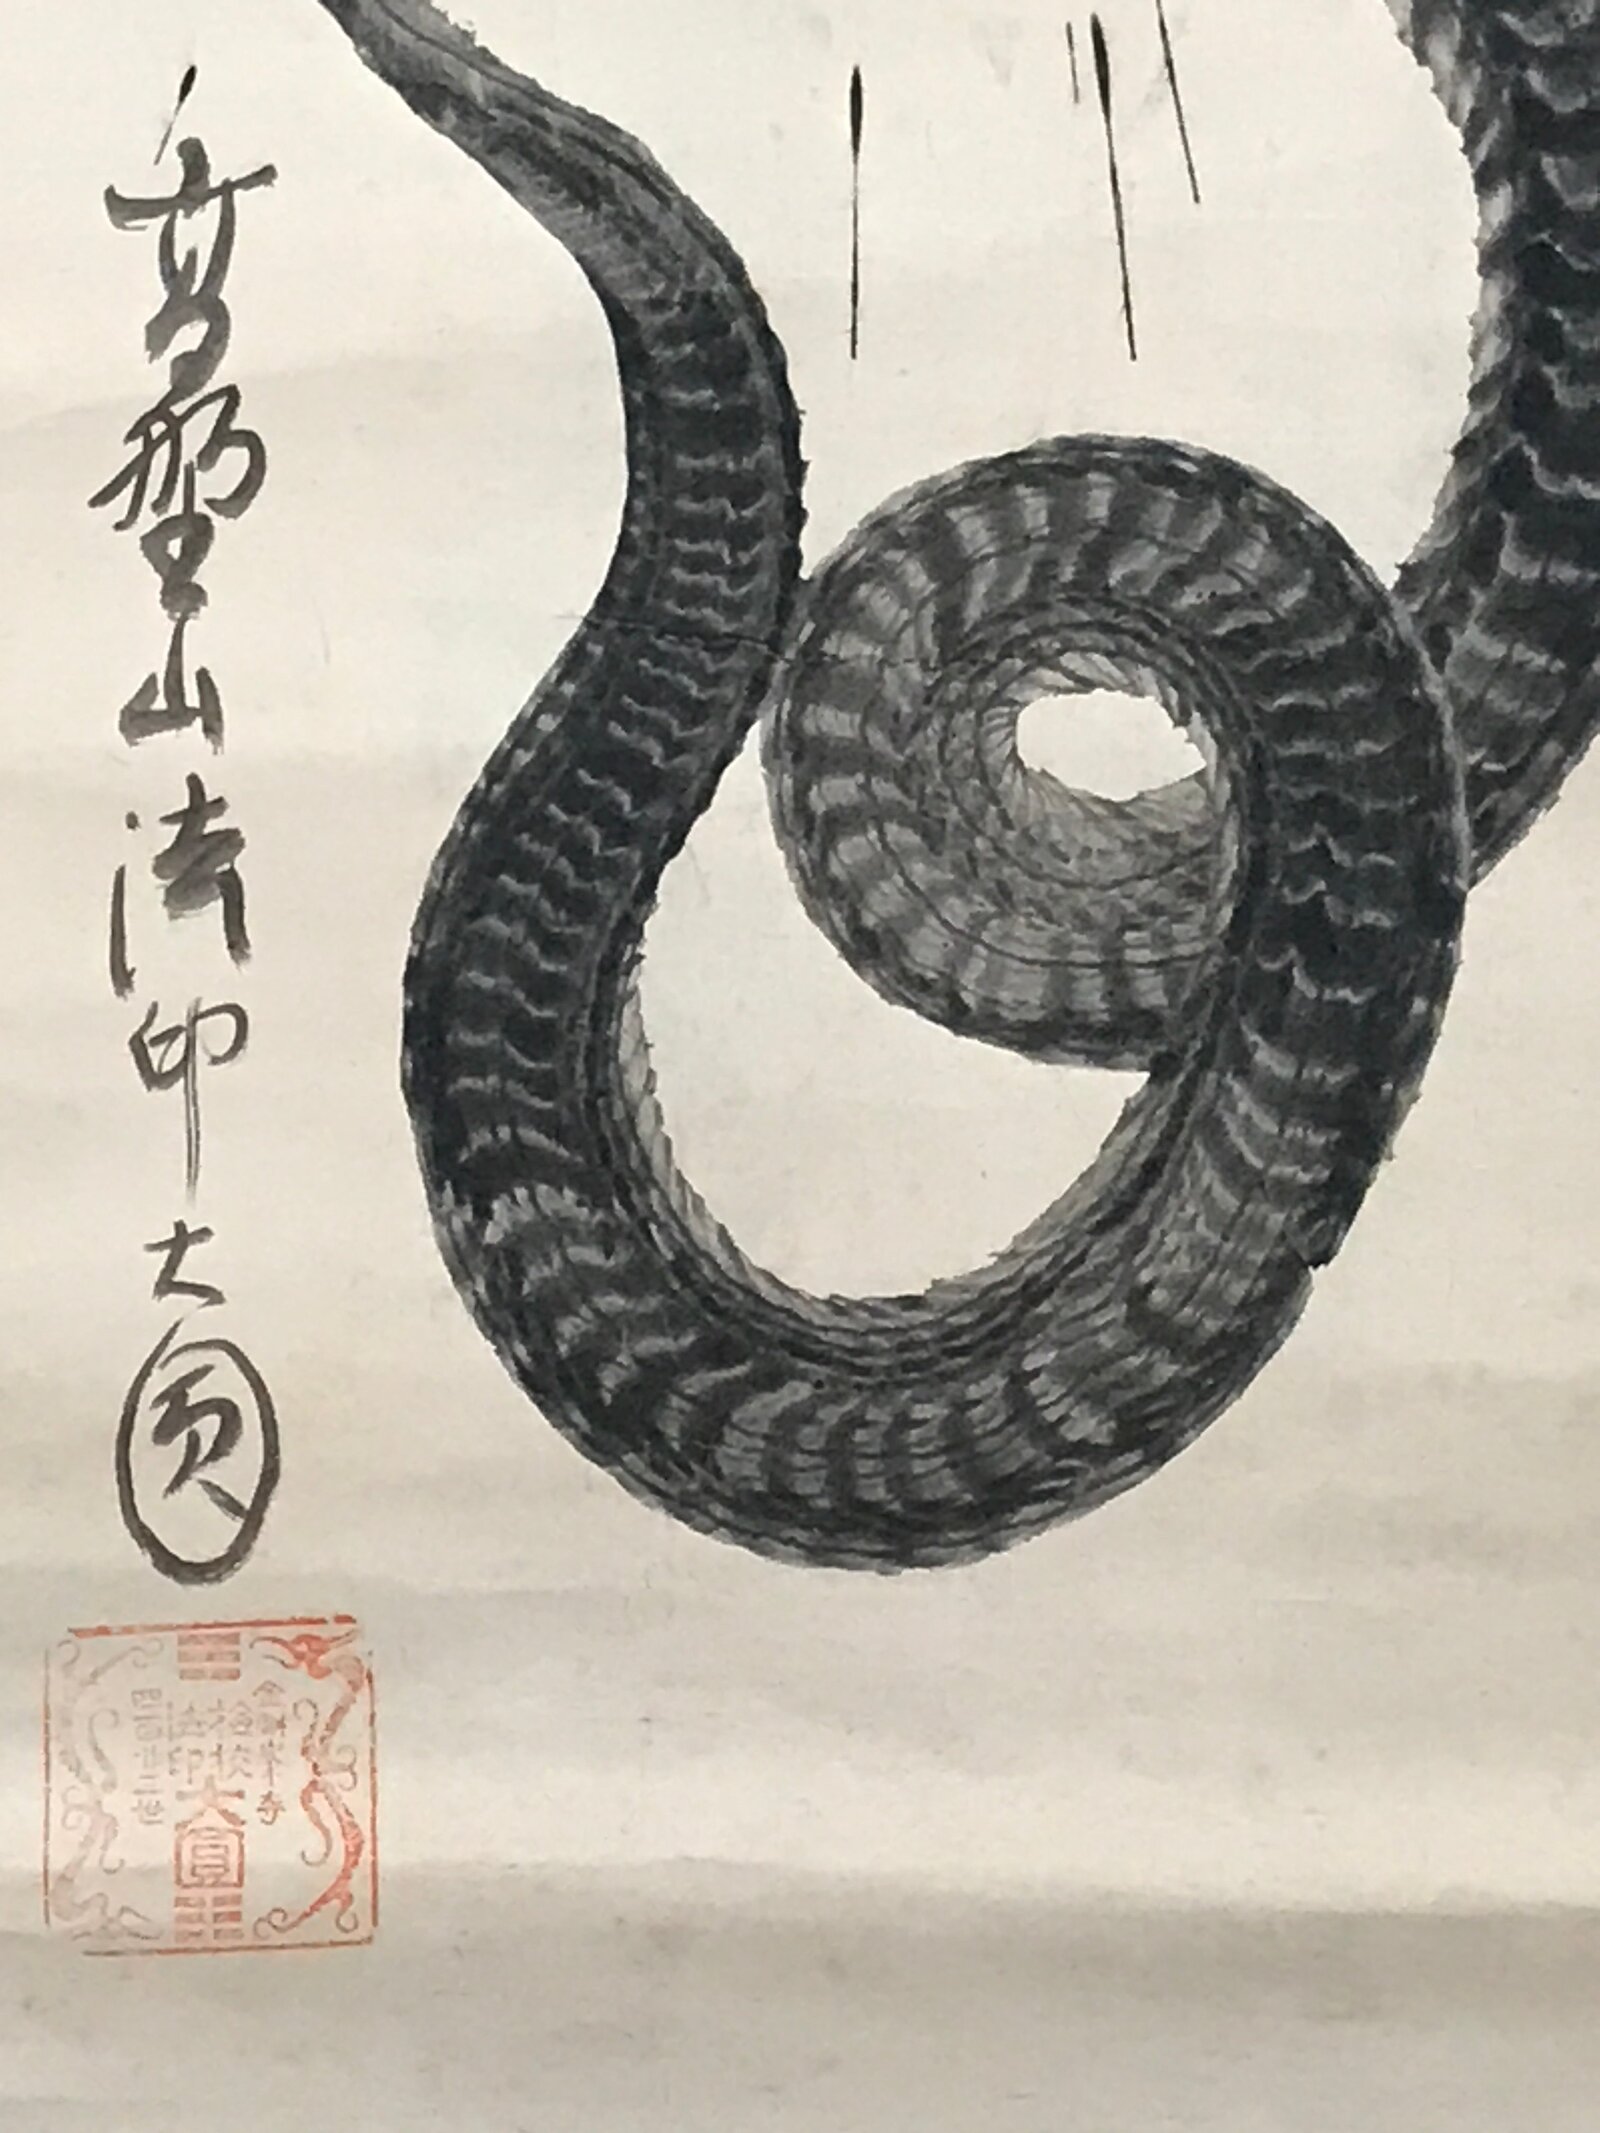 高野山法印大圓
金剛峯寺
検校
法印
大圓
四百廿二世